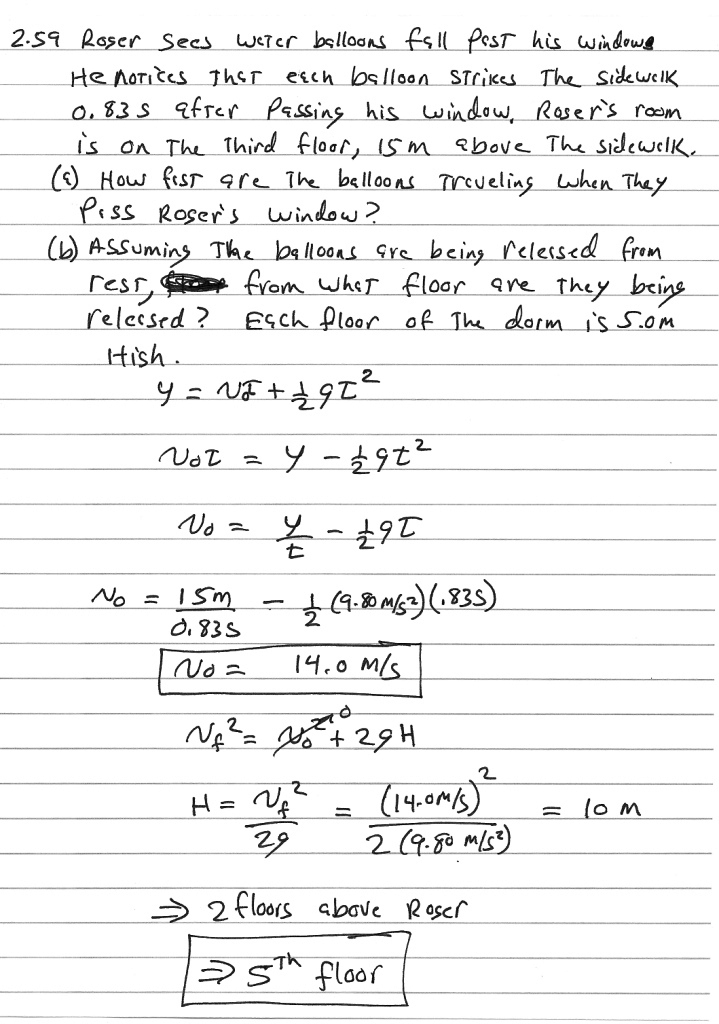 2.59 Roger sees water balloons fall past his window.
He notices that each balloon strikes the sidewalk
0.83 s after passing his window. Roger's room
is on the third floor, 15 m above the sidewalk.
(a) How fast are the balloons traveling when they
pass Roger's window?
(b) Assuming the balloons are being released from
rest, from what floor are they being
released? Each floor of the dorm is 5.0 m
High.
y = v₀t + ½gt²
v₀t = y - ½gt²
v₀ = y/t - ½gt
v₀ = 15m/0.83s - ½ (9.80 m/s²)(.83s)
v₀ = 14.0 m/s
v_f² = v₀² 0 + 2gH
H = v_f²/2g = (14.0m/s)²/2(9.80 m/s²) = 10 m
⇒ 2 floors above Roger
⇒ 5th floor